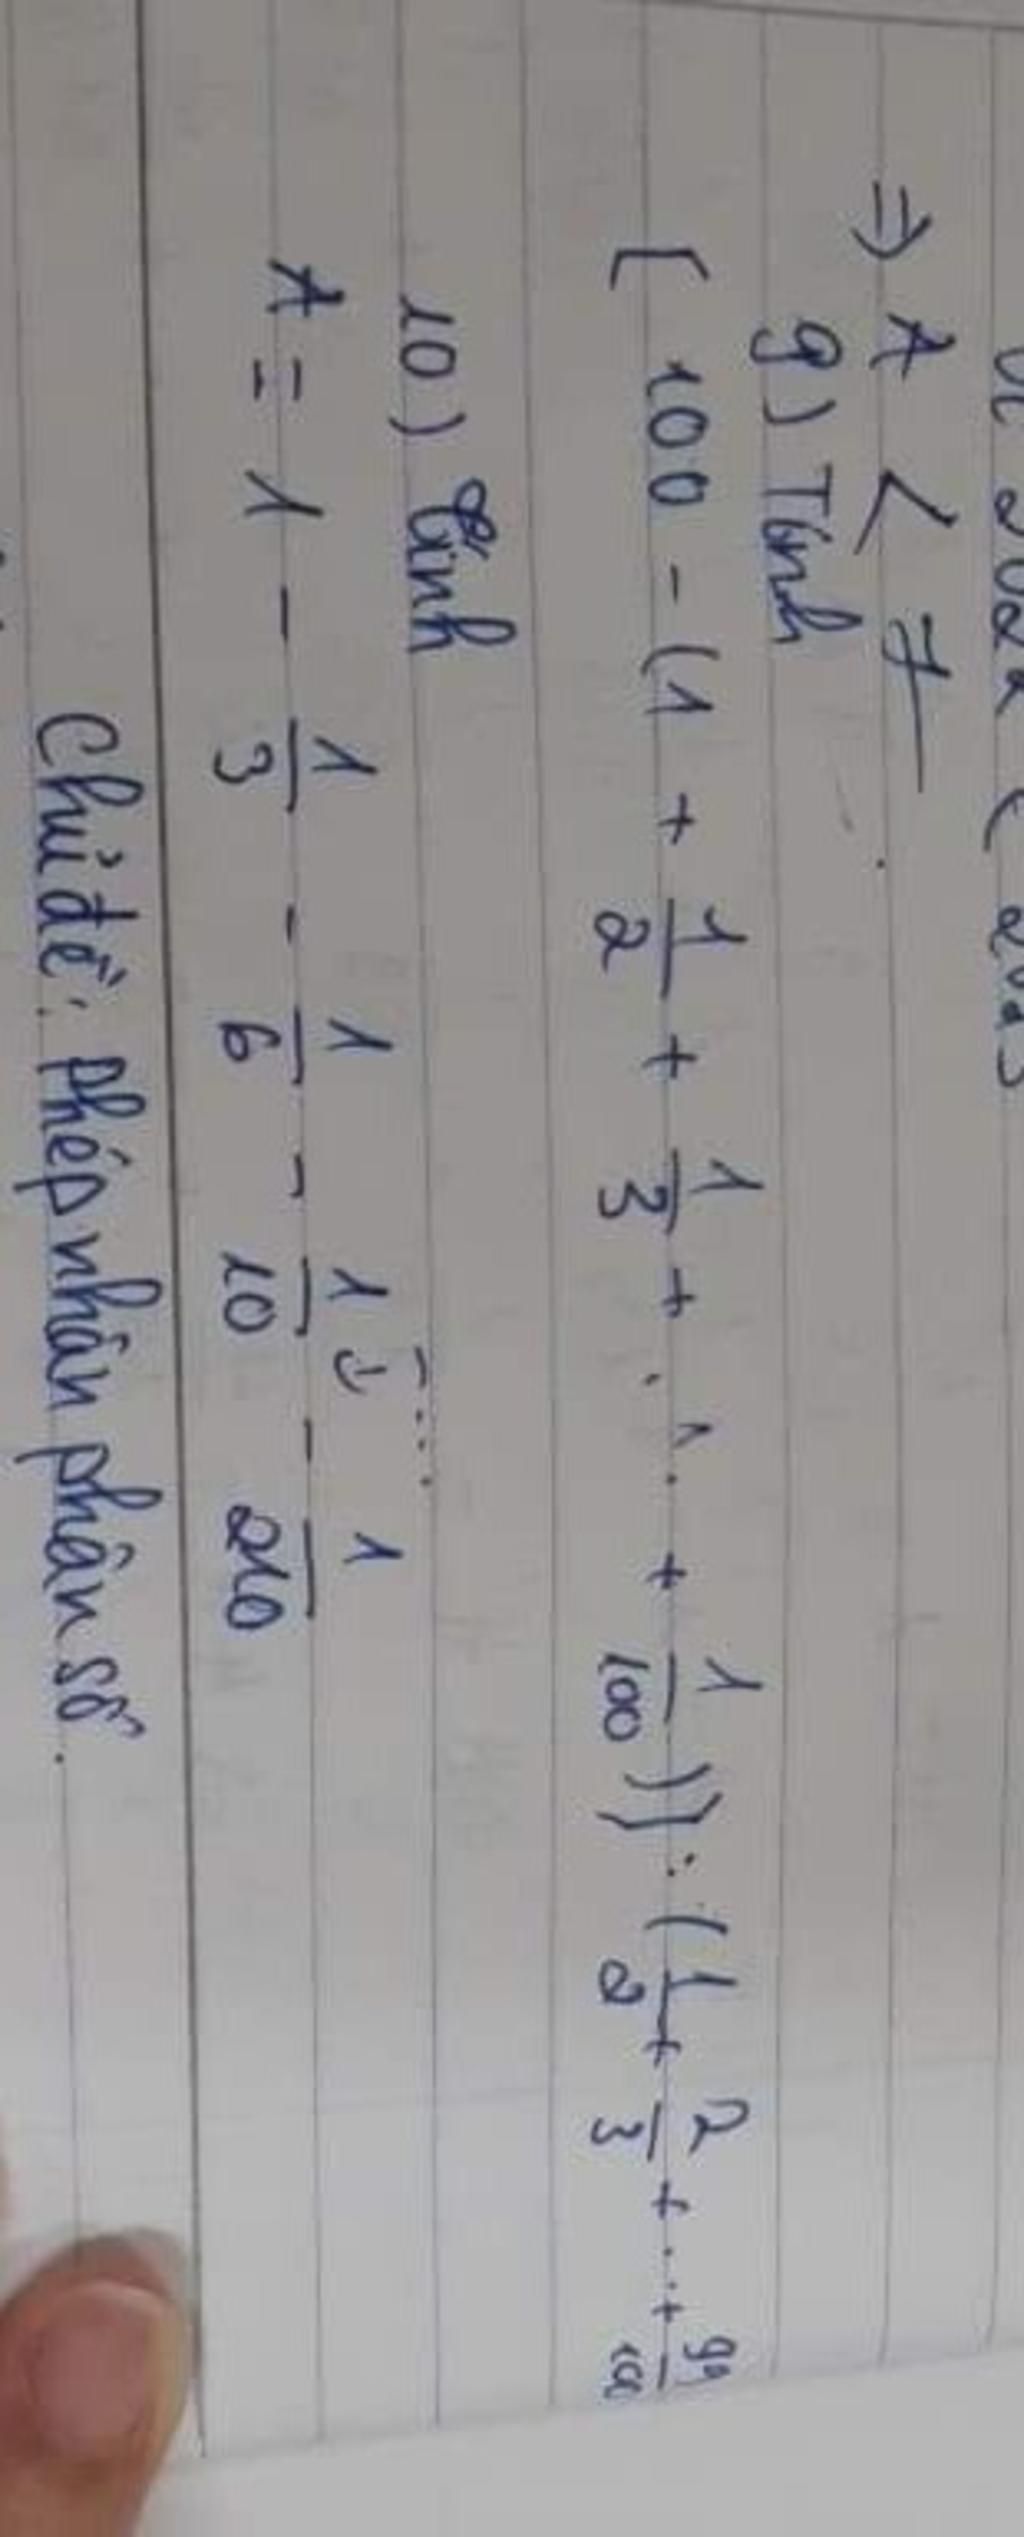 ⇒ A < 7
9) Tính
[100 - (1 + 1/2 + 1/3 + ... + 1/100)] : (1/2 + 2/3 + ... + 99/100
10) Tính
A = 1 - 1/3 - 1/6 - 1/10 - ... - 1/210
Chủ đề: Phép nhân phân số.